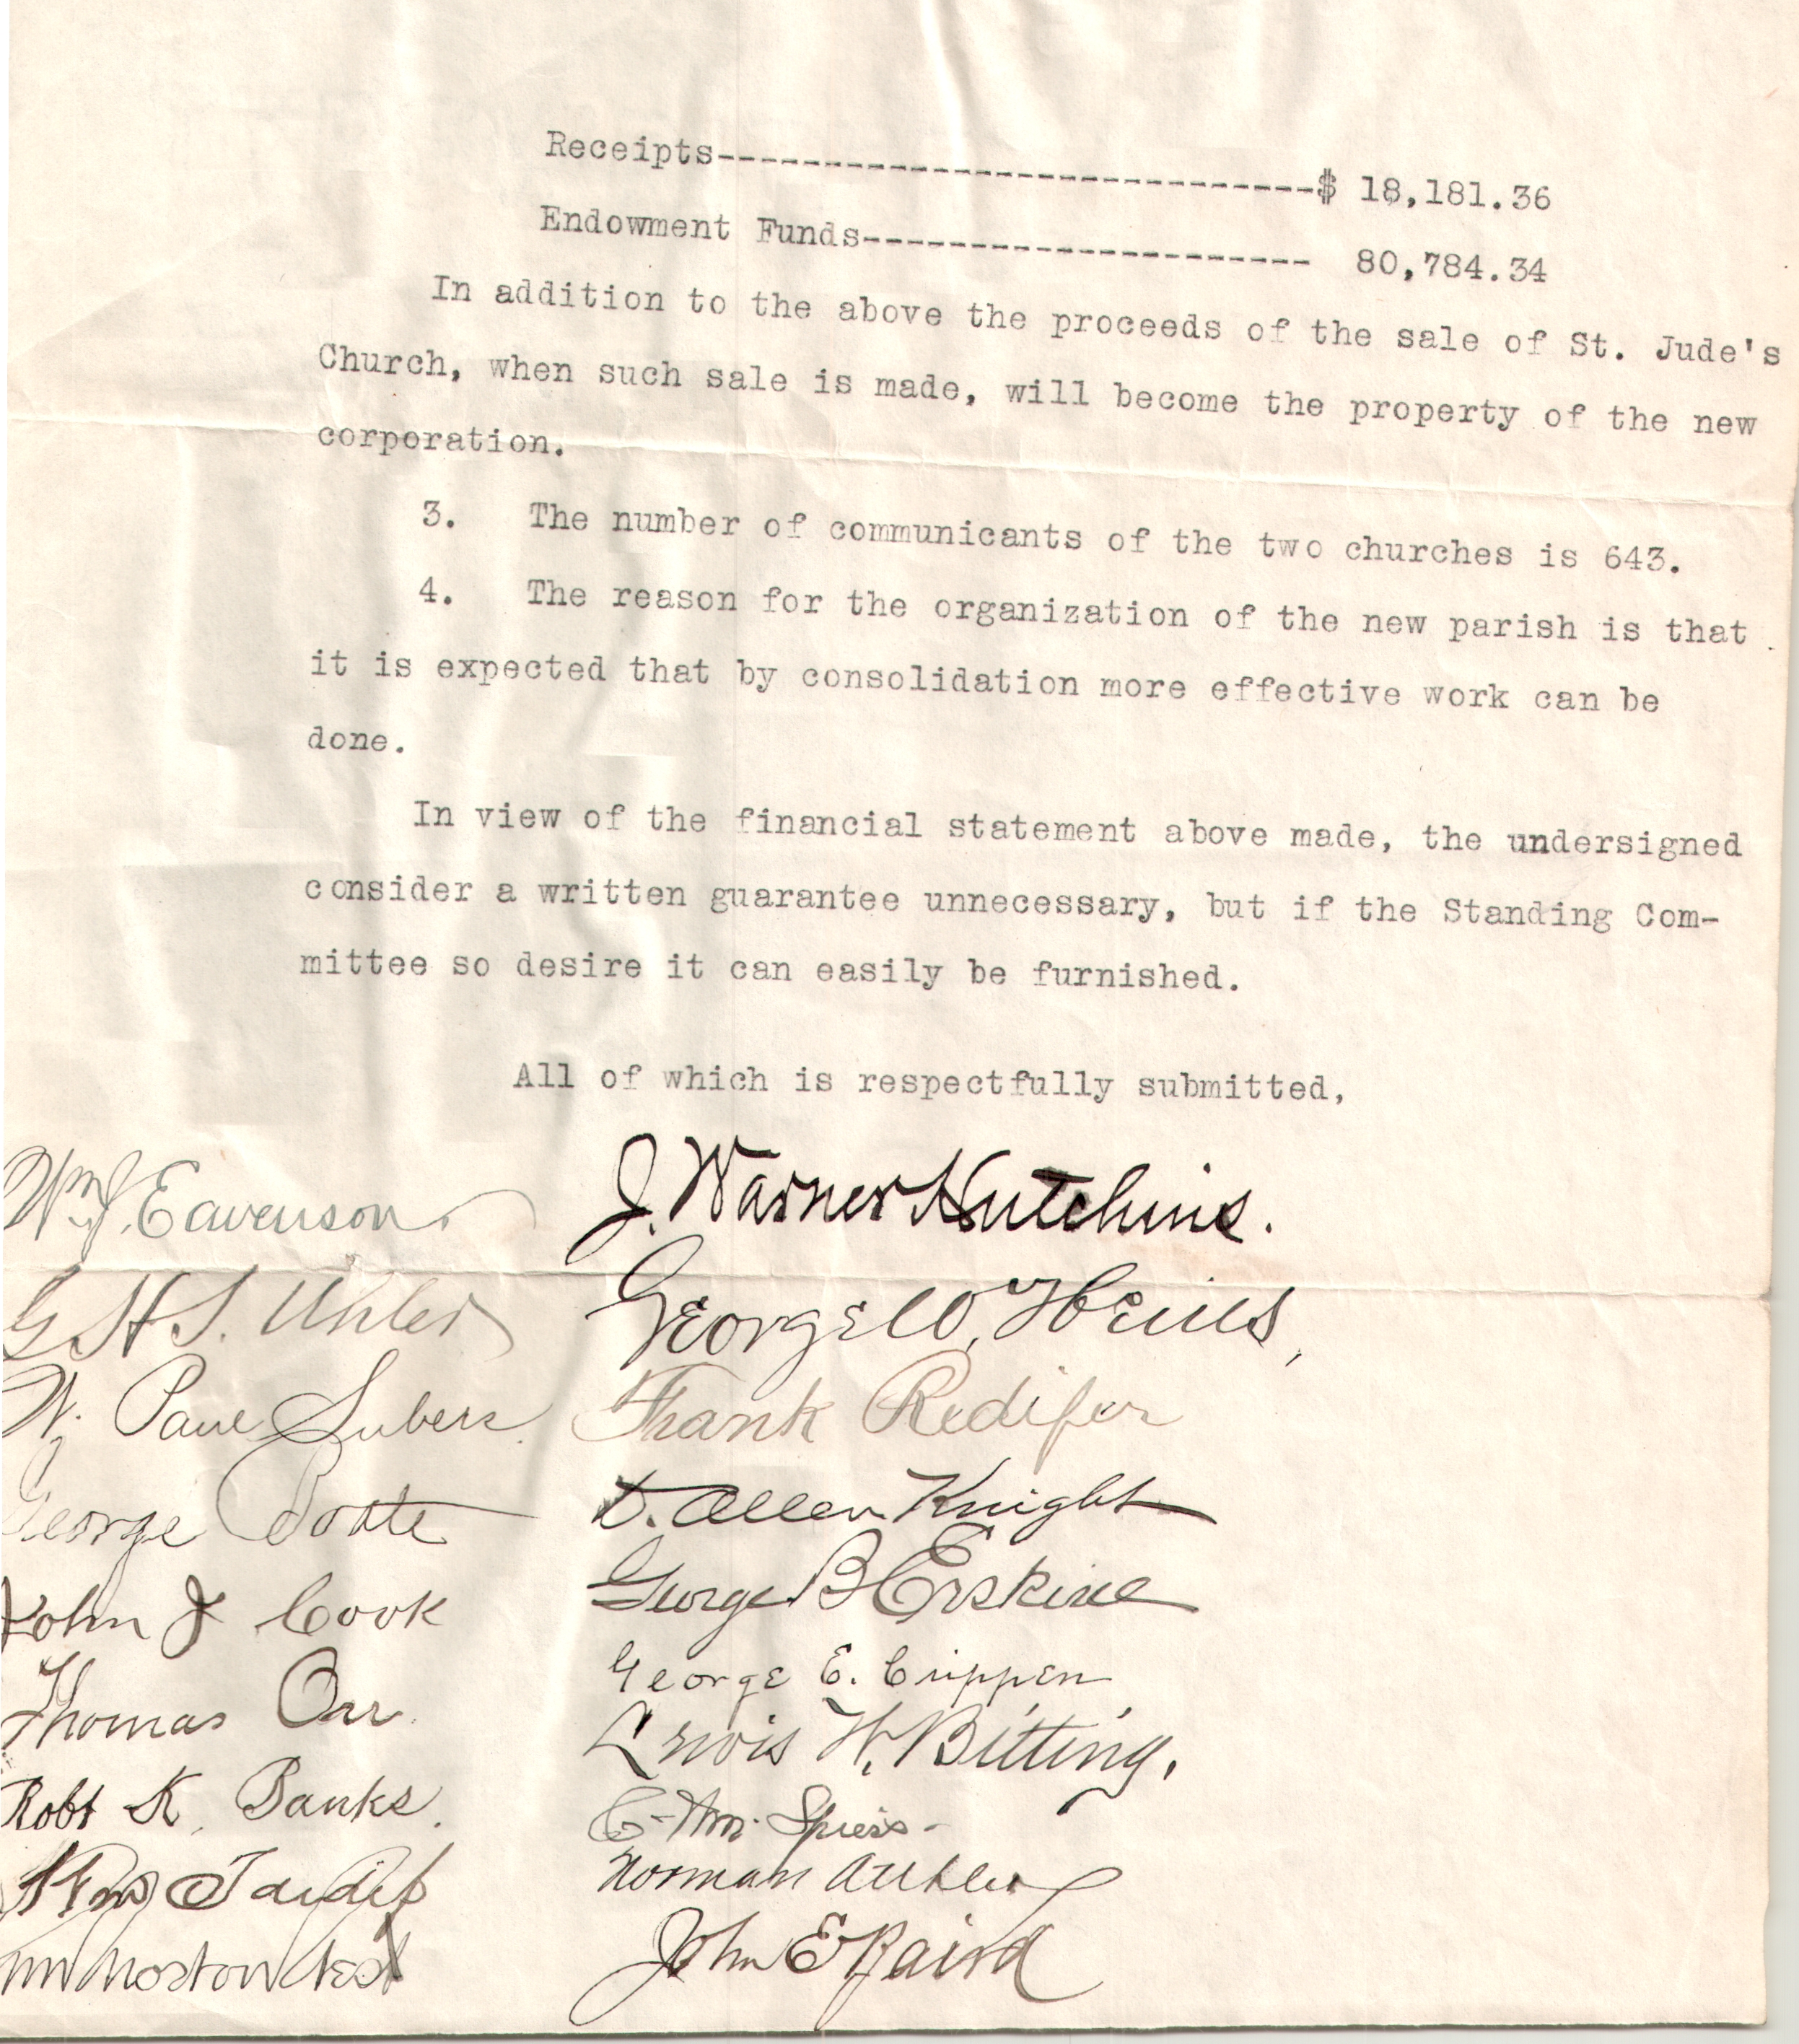 Receipts----------------------------$ 18,181.36
Endowment Funds--------------------- 80,784.34
In addition to the above the proceeds of the sale of St. Jude's
Church, when such sale is made, will become the property of the new
corporation.
3. The number of communicants of the two churches is 643.
4. The reason for the organization of the new parish is that
it is expected that by consolidation more effective work can be
done.
In view of the financial statement above made, the undersigned
consider a written guarantee unnecessary, but if the Standing Com-
mittee so desire it can easily be furnished.
All of which is respectfully submitted,
J. Warner Hutchins.
George W. Heills,
Frank Redifer
D. Allen Knight
George B Erskine
George E. Crippen
Lewis H. Bitting.
C. Wm. Spiess
Norman
John E Baird
Wm. J. Eavenson.
G H S. Uhler
W. Paul Subers
George
John J Cook
Thomas Orr.
Robt K. Banks.